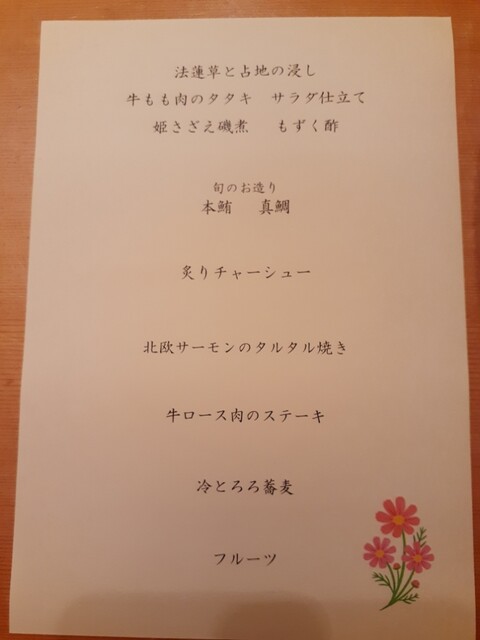 法蓮草と占地の浸し
牛もも肉のタタキ　サラダ仕立て
姫さざえ磯煮　もずく酢
旬のお造り
本鮪　真鯛
炙りチャーシュー
北欧サーモンのタルタル焼き
牛ロース肉のステーキ
冷とろろ蕎麦
フルーツ